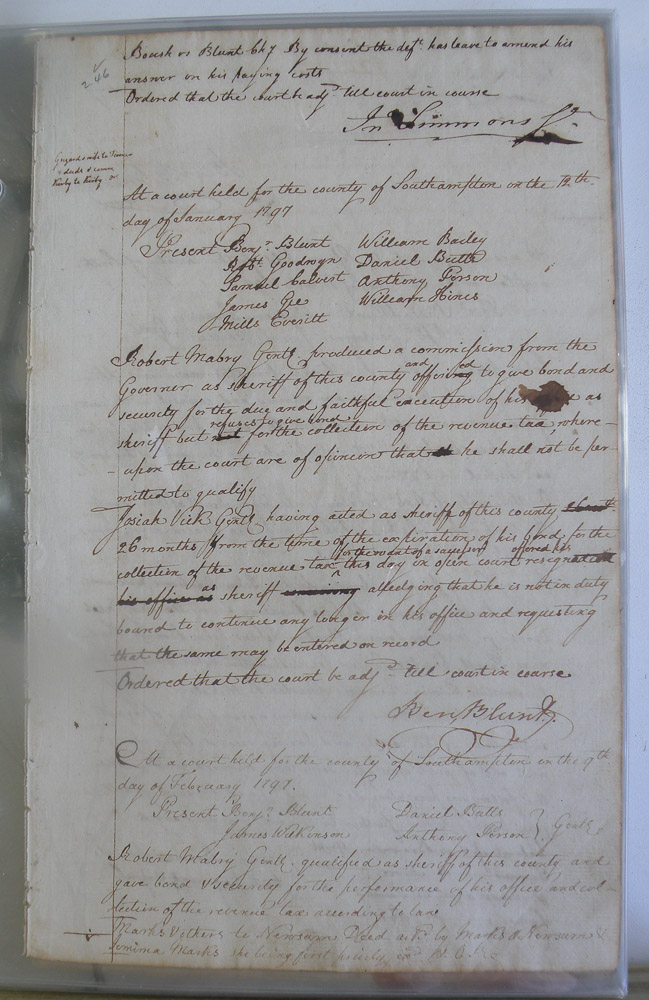 246
Boush vs Blunt Chy By consent the deft. has leave to amend his
answer on his paying costs
Ordered that the court be adjd till court in course
Jno Simmons
deeds &
Kirby to Kirby &c
At a court held for the county of Southampton on the 12th
day of January 1797
Present Benjn. Blunt William Bailey
Robt. Goodwyn Daniel Butts
Samuel Calvert Anthony Person
James Gee William Hines
Mills Everitt
Robert Mabry Gentl. produced a commission from the
Governor as sheriff of this county and offered to give bond and
security for the due and faithful execution of his as
sheriff but refuses to give bond for the collection of the revenue tax, where-
-upon the court are of opinion that he shall not be per-
mitted to qualify
Josiah Vick Gentl having acted as sheriff of this county
26 months from the time of the expiration of his bond for the
collection of the revenue tax for the want of a successor this day in open court offered his
his office as sheriff alledging that he is not in duty
bound to continue any longer in his office and requesting
that the same may be entered on record
Ordered that the court be adjd. till court in course
Ben Blunt
At a court held for the county of Southampton on the 9th
day of February 1797.
Present Benjn. Blunt Daniel Butts
James Wilkinson Anthony Person } Gentl.
Robert Mabry Gentl. qualified as sheriff of this county and
gave bond & security for the performance of his office and col-
lection of the revenue tax according to law
Marks & others to Newsum Deed by Marks & Newsum &
Jemima Marks she being first privily